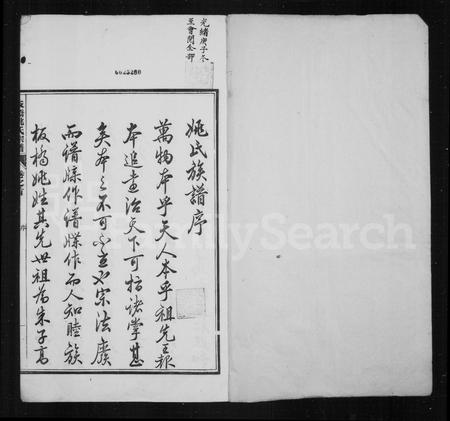 光緒庚子冬
至會閱全部
姚氏族譜序
萬物本乎天人本乎祖先王報
本追遠治天下可指諸掌甚
矣本之不可不立也宗法廢
而譜牒作譜牒作而人知睦族
板橋姚姓其先世祖為朱子高
序
FamilySearch